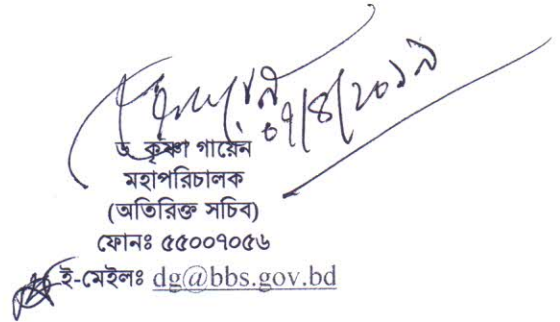 ০৭/৪/২০১৯
ড. কৃষ্ণা গায়েন
মহাপরিচালক
(অতিরিক্ত সচিব)
ফোনঃ ৫৫০০৭০৫৬
ই-মেইলঃ dg@bbs.gov.bd